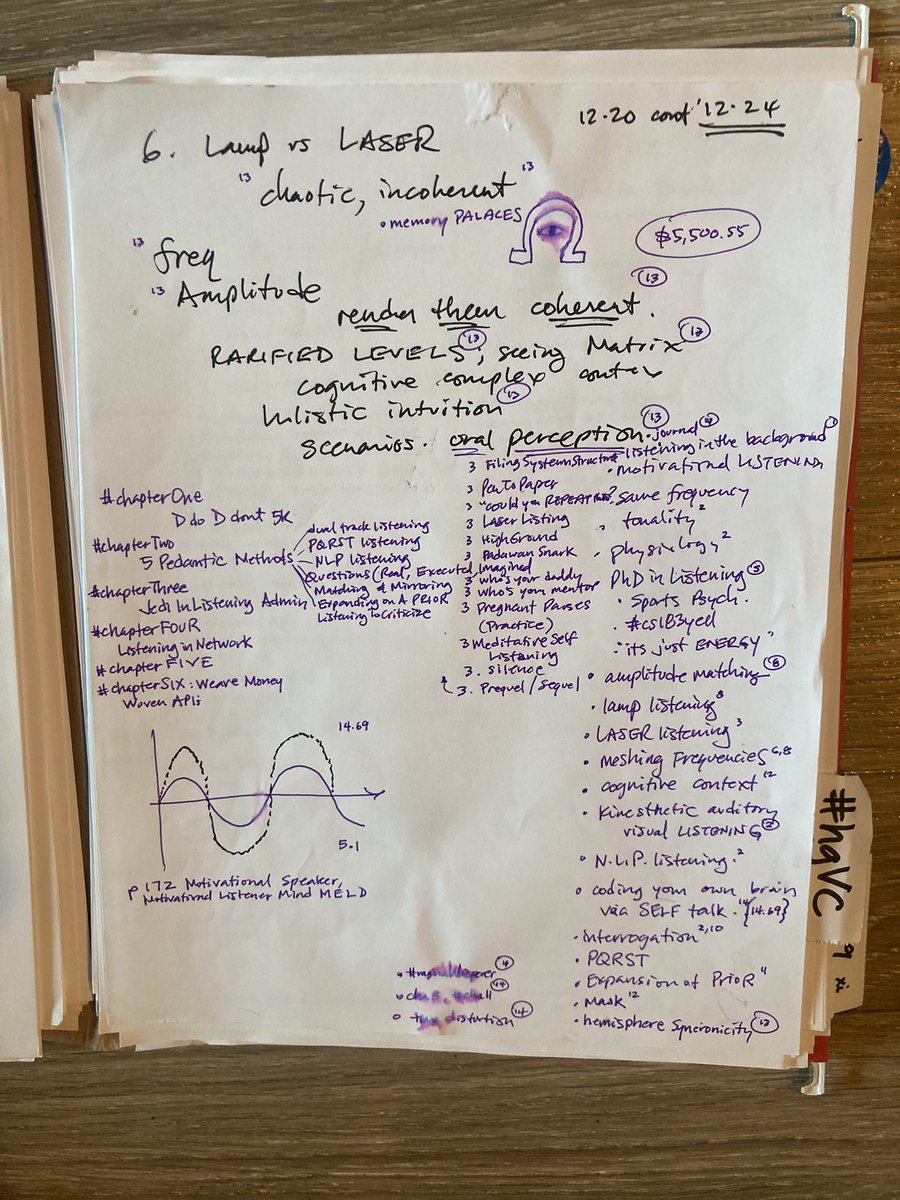 12.20 cont' 12.24
6. Lamp vs LASER
13 chaotic, incoherent 13
• memory PALACES
$5,500.55
13 freq
13 Amplitude
render them coherent. 13
RARIFIED LEVELS 13; seeing Matrix 13
cognitive complex contex
holistic intuition 13
scenarios. oral perception 13
• journal 4
• listening in the background 1
• motivational LISTENING
3 Filing System Structure
3 Pen To Paper
3 "could you REPEAT
3 Laser Listing
3 High Ground
3 Padawan Snark
3 who's your daddy
3 who's your mentor
3 Pregnant Pauses
(Practice)
3 Meditative Self
Listening
3. silence
3. Prequel / Sequel
#chapterOne
D do D dont 5K
#chapterTwo
5 Pedantic Methods
dual track listening
PQRST listening
NLP listening
Questions (Real, Executed, Imagined
Matching & Mirroring
Expanding on A PRIOR
Listening to Criticize
#chapterThree
Jedi In Listening Admin
#chapterFOUR
Listening in Network
#chapterFIVE
#chapterSIX: Weave Money
Woven APIs
• same frequency
• tonality 2
• physiology 2
PhD in Listening 5
• Sports Psych.
• #cslB3yell
• "its just ENERGY"
• amplitude matching 8
• lamp listening 8
• LASER listening 3
• meshing Frequencies 6,8
• cognitive context 12
• Kinesthetic auditory
visual LISTENING 2
• N.L.P. listening. 2
• coding your own brain
via SELF talk. 14 {14.69}
• interrogation 2,10
• PQRST
• Expansion of PrioR 4
• Mask 12
• hemisphere syncronicity 13
14.69
5.1
p 172 Motivational Speaker,
Motivational Listener Mind MELD
4
14
• time distortion 14
#hqVC
9 xi